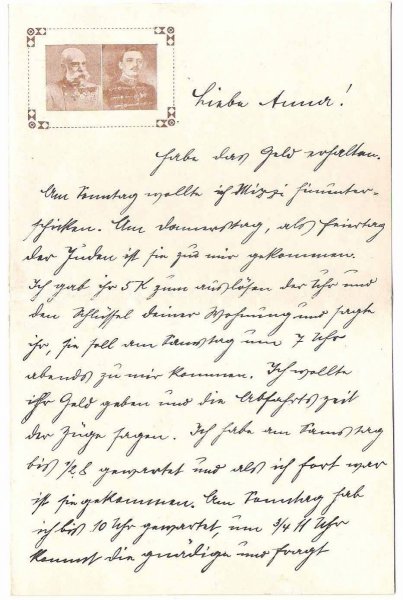 Liebe Anna!
habe das Geld erhalten.
Am Sonntag wollte ich Mizzi hinunter-
schicken. Am Donnerstag, als Feiertag
der Juden ist sie zu mir gekommen.
Ich gab ihr 5 K zum auslösen der Uhr und
den Schlüssel deiner Wohnung und sagte
ihr, sie soll am Samstag um 7 Uhr
abends zu mir kommen. Ich wollte
ihr Geld geben und die Abfahrtszeit
der Züge sagen. Ich habe am Samstag
bis 1/2 8 gewartet und als ich fort war
ist sie gekommen. Am Sonntag hab
ich bis 10 Uhr gewartet, um 3/4 11 Uhr
kommt die gnädige und fragt